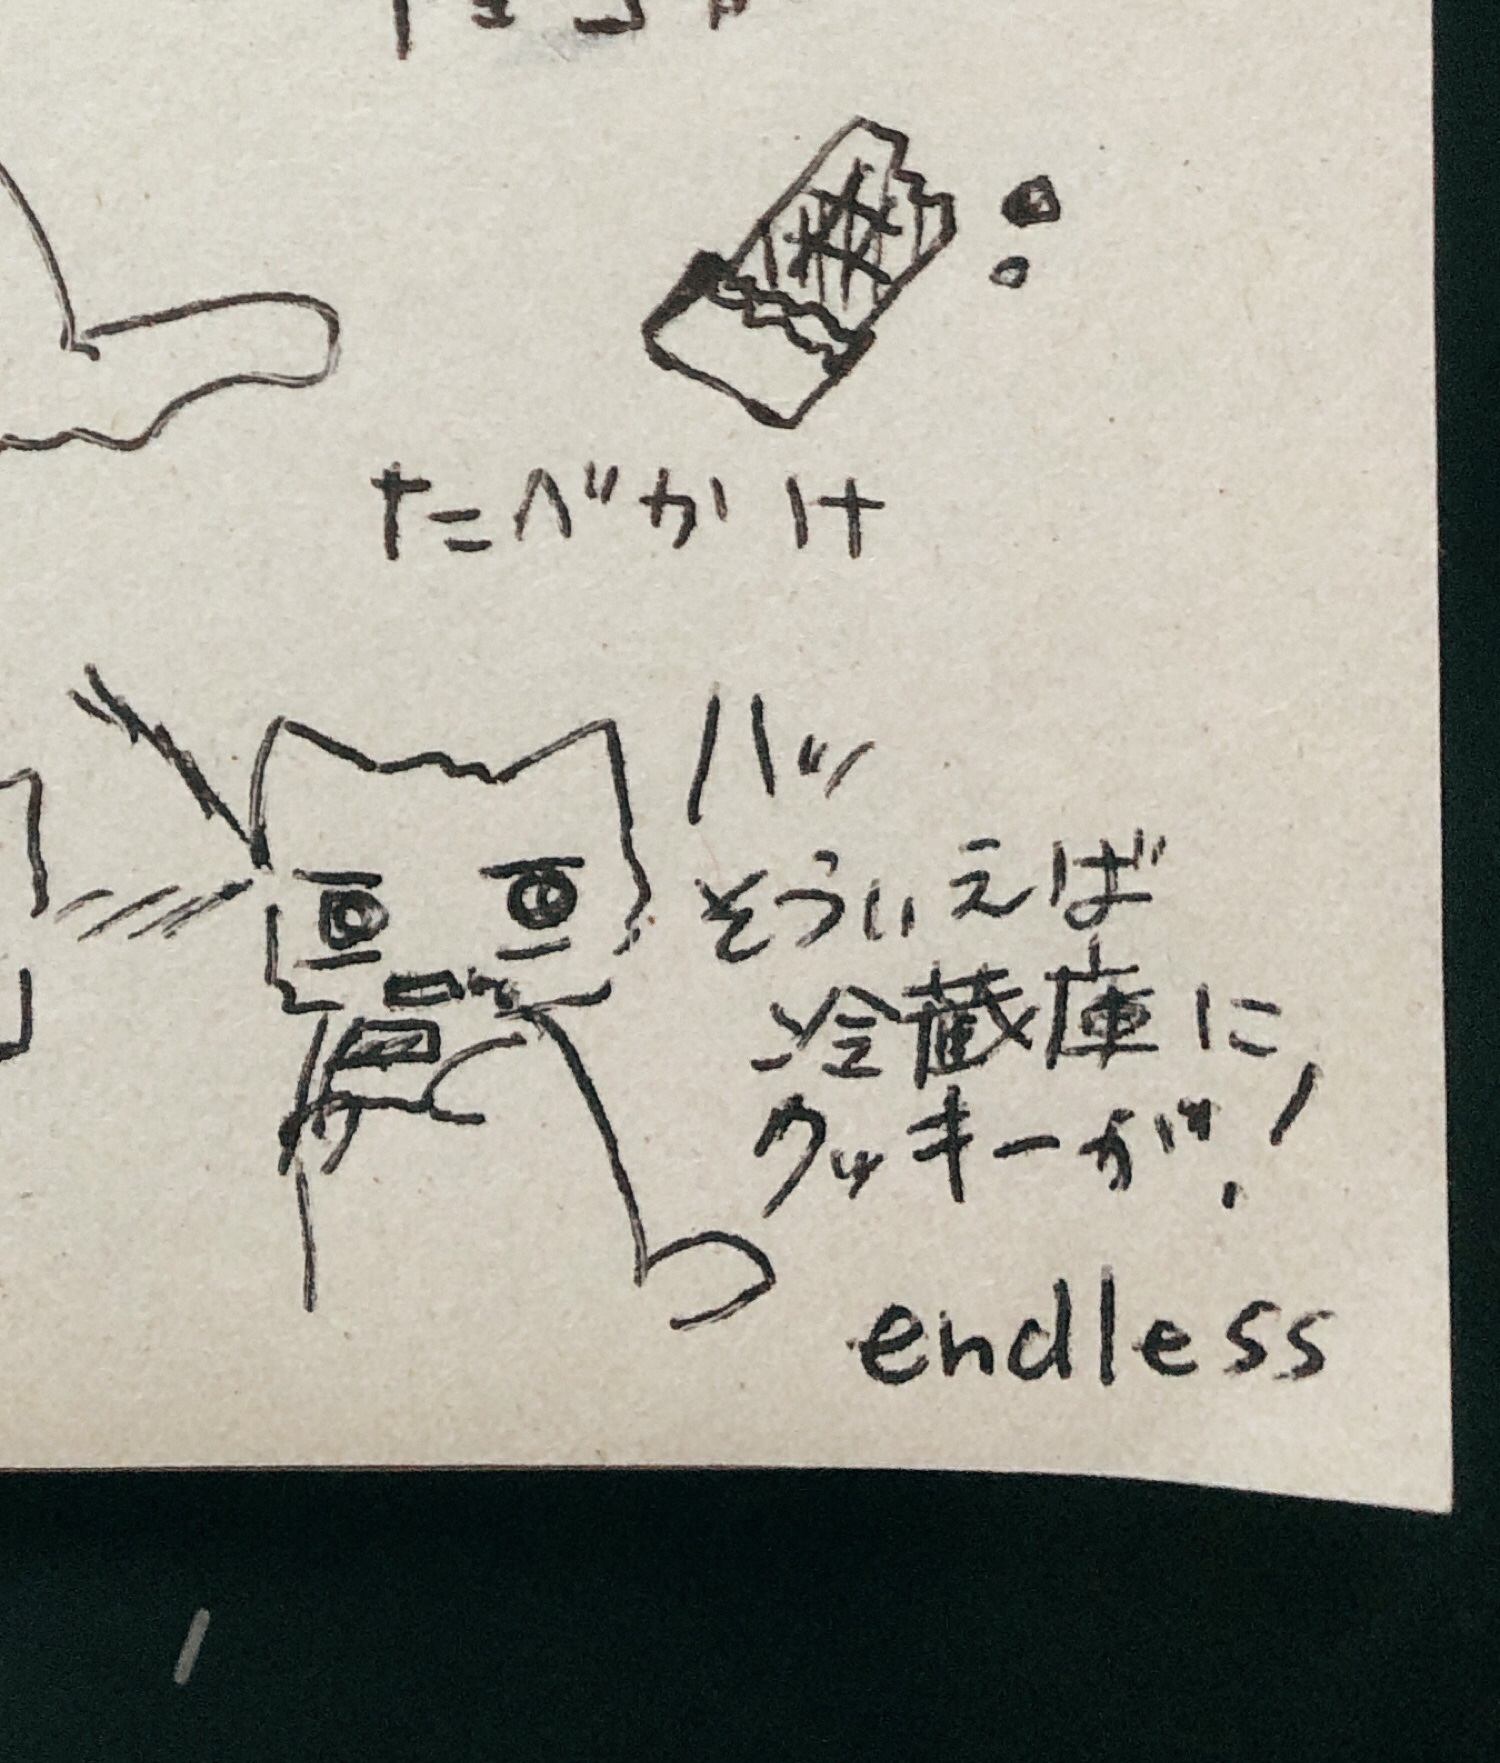 たべかけ
ハッ
そういえば
冷蔵庫に
クッキーが!
endless